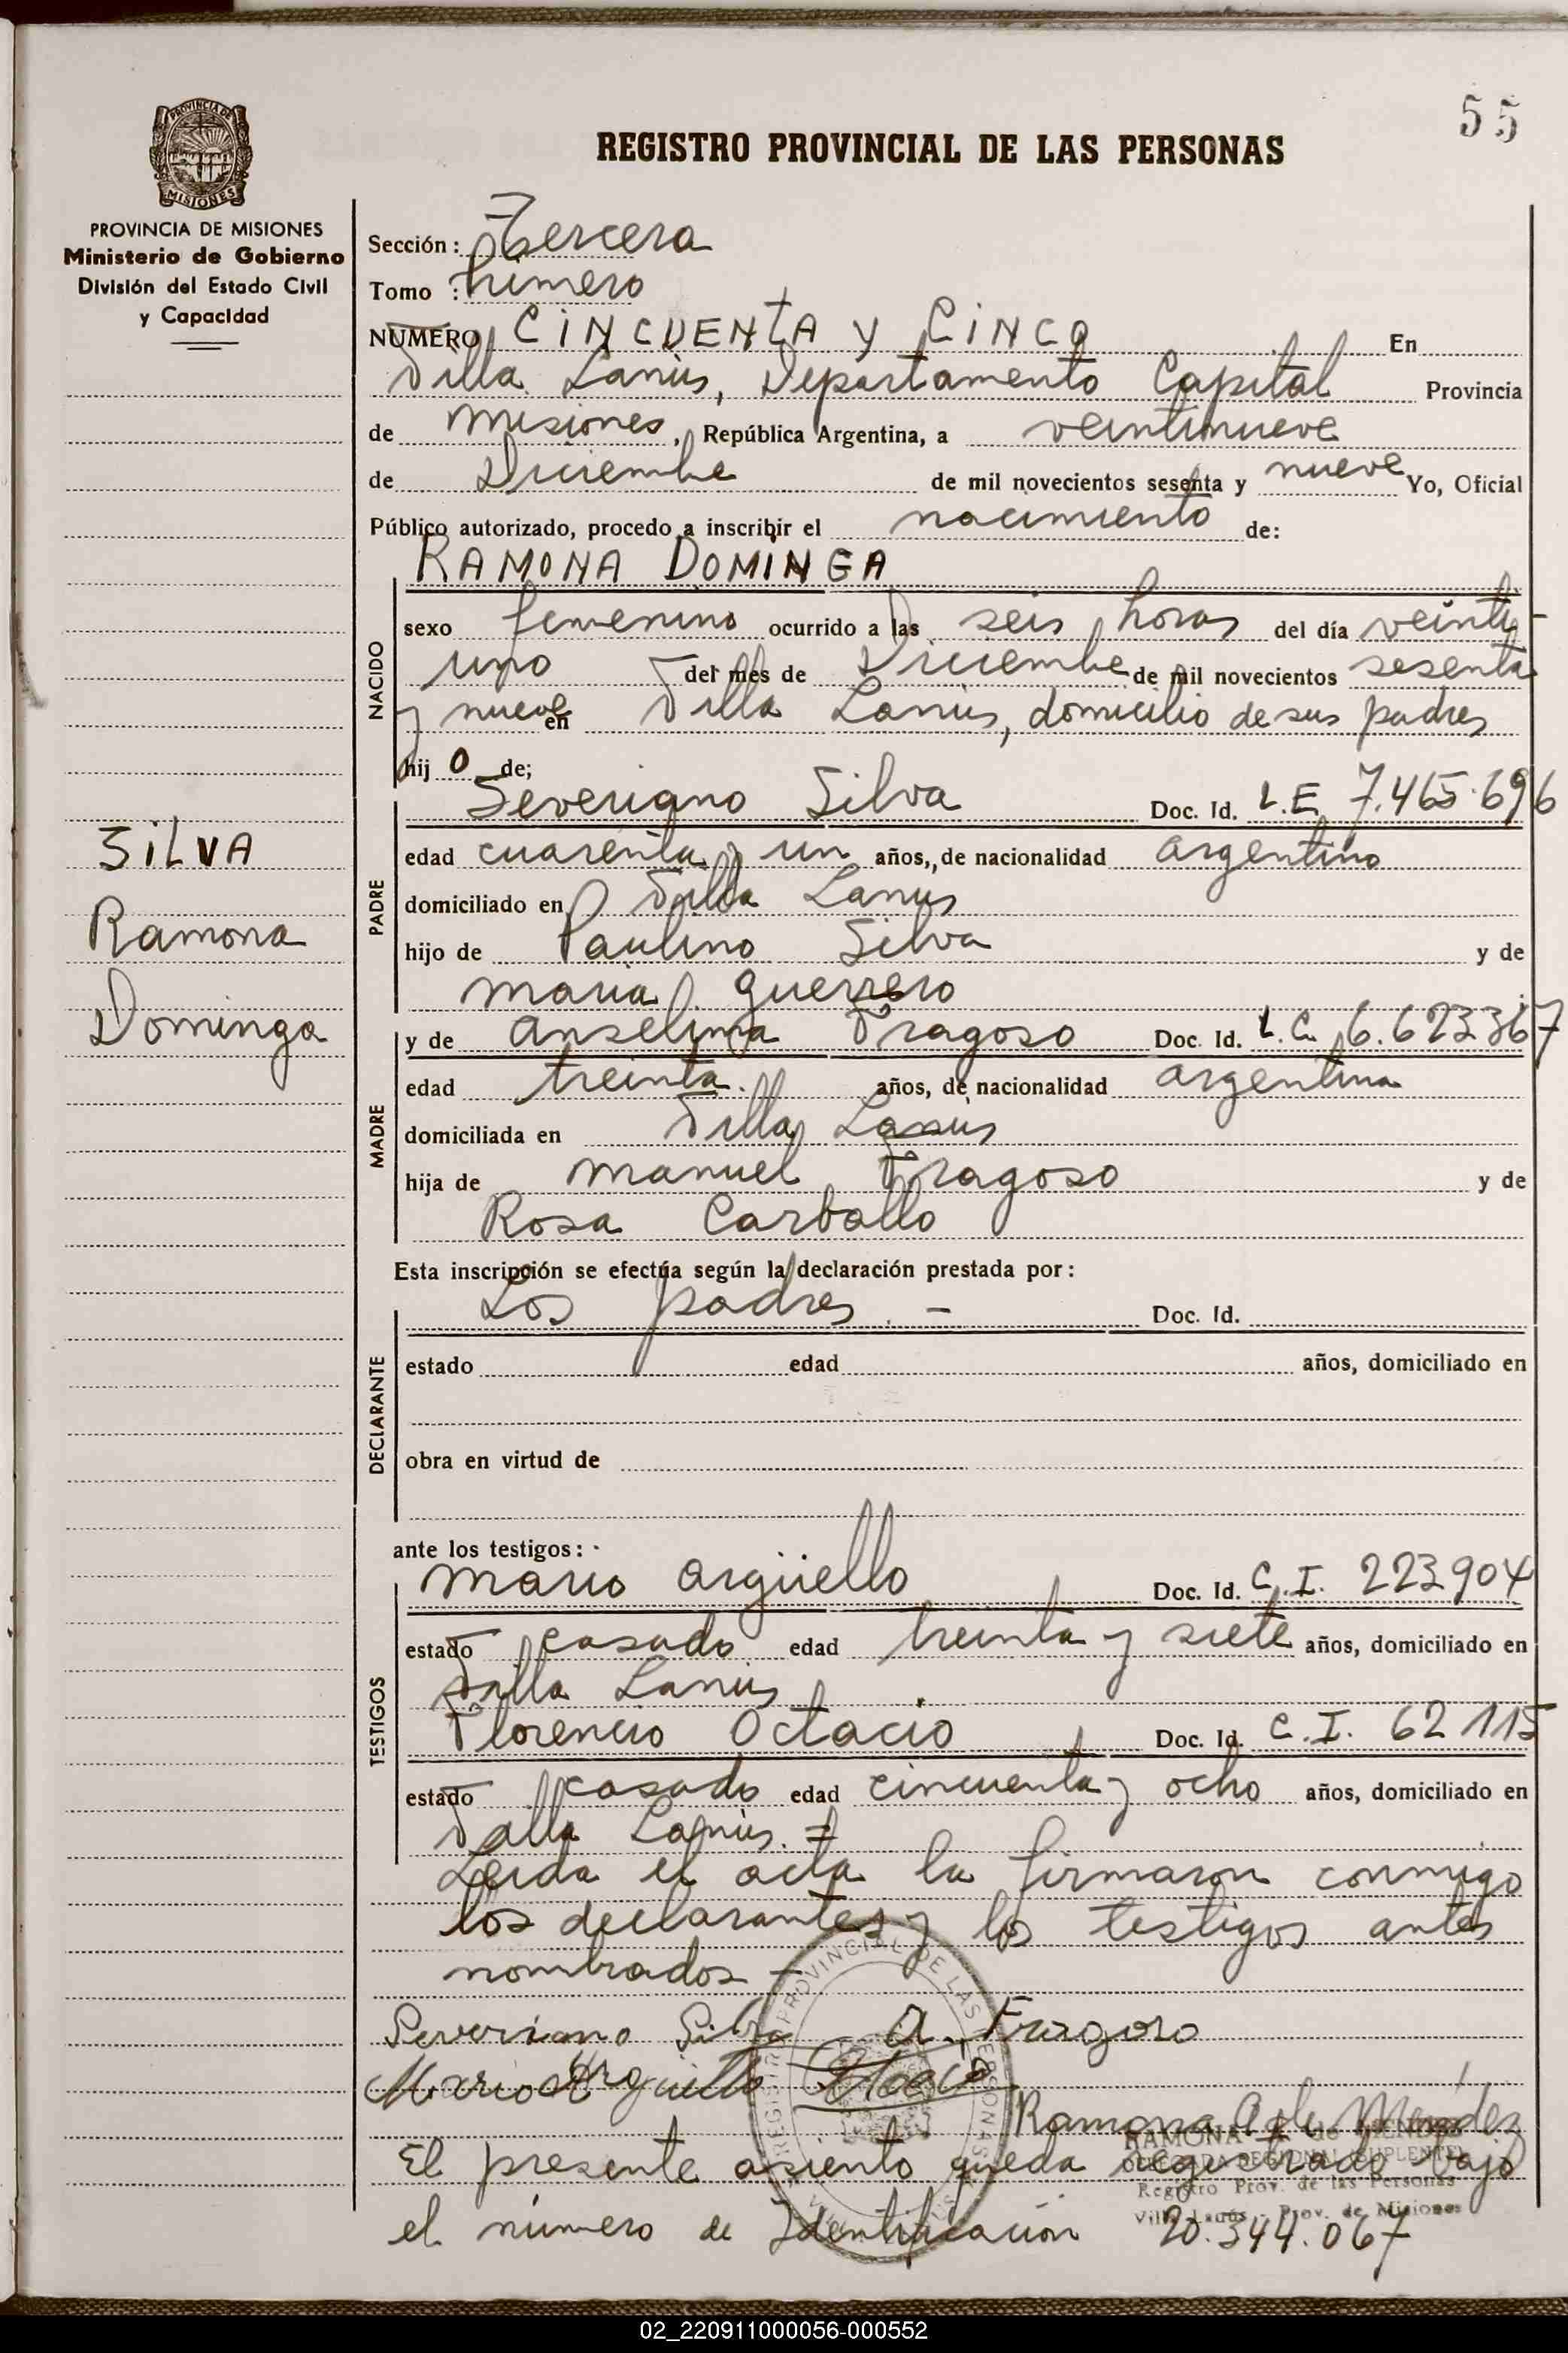 55
PROVINCIA DE
MISIONES
REGISTRO PROVINCIAL DE LAS PERSONAS
PROVINCIA DE MISIONES
Ministerio de Gobierno
División del Estado Civil
y Capacidad
Sección: Tercera
Tomo : Primero
NÚMERO CINCUENTA Y CINCO En
Villa Lanús, Departamento Capital Provincia
de Misiones, República Argentina, a veintinueve
de Diciembre de mil novecientos sesenta y nueve Yo, Oficial
Público autorizado, procedo a inscribir el nacimiento de:
RAMONA DOMINGA
NACIDO
sexo femenino ocurrido a las seis horas del día veinti-
uno del mes de Diciembre de mil novecientos sesenta
y nueve en Villa Lanús, domicilio de sus padres
hij o de;
SILVA
Ramona
Dominga
PADRE
Severiano Silva Doc. Id. L.E. 7.465.696
edad cuarenta y un años, de nacionalidad argentino
domiciliado en Villa Lanus
hijo de Paulino Silva y de
Maria Guerrero
MADRE
y de Anselima Fragoso Doc. Id. L.C. 6.623367
edad treinta. años, de nacionalidad argentina
domiciliada en Villa Lanús
hija de Manuel Fragoso y de
Rosa Carballo
Esta inscripción se efectúa según la declaración prestada por:
DECLARANTE
Los padres. - Doc. Id.
estado edad años, domiciliado en
obra en virtud de
ante los testigos:
TESTIGOS
Mario Argüello Doc. Id. C.I. 223904
estado casado edad treinta y siete años, domiciliado en
Villa Lanús
Florencio Octacio Doc. Id. C.I. 62115
estado casado edad cincuenta y ocho años, domiciliado en
Villa Lanús. =
Leida el acta la firmaron conmigo
los declarantes y los testigos antes
nombrados -
Severiano Silva A. Fragoso
Mario Arguello Otacio
Ramona A de Mendez
RAMONA A. de MENDEZ
Registro Prov. de las Personas
Villa Lanús - Prov. de Misiones
REGISTRO PROVINCIAL DE LAS PERSONAS
El presente asiento queda registrado bajo
el número de Identificación 20.344.067
02_220911000056-000552